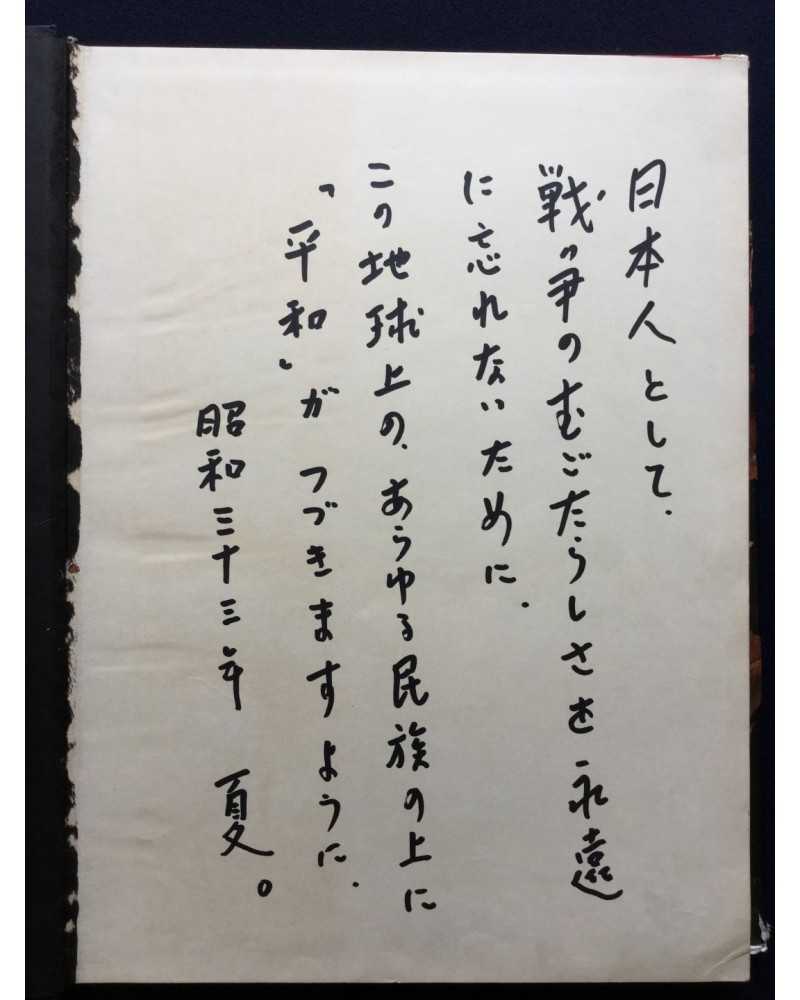 日本人として、
戦争のむごたらしさを永遠
に忘れないために、
この地球上の、あらゆる民族の上に
「平和」がつづきますように、
昭和三十三年 夏。